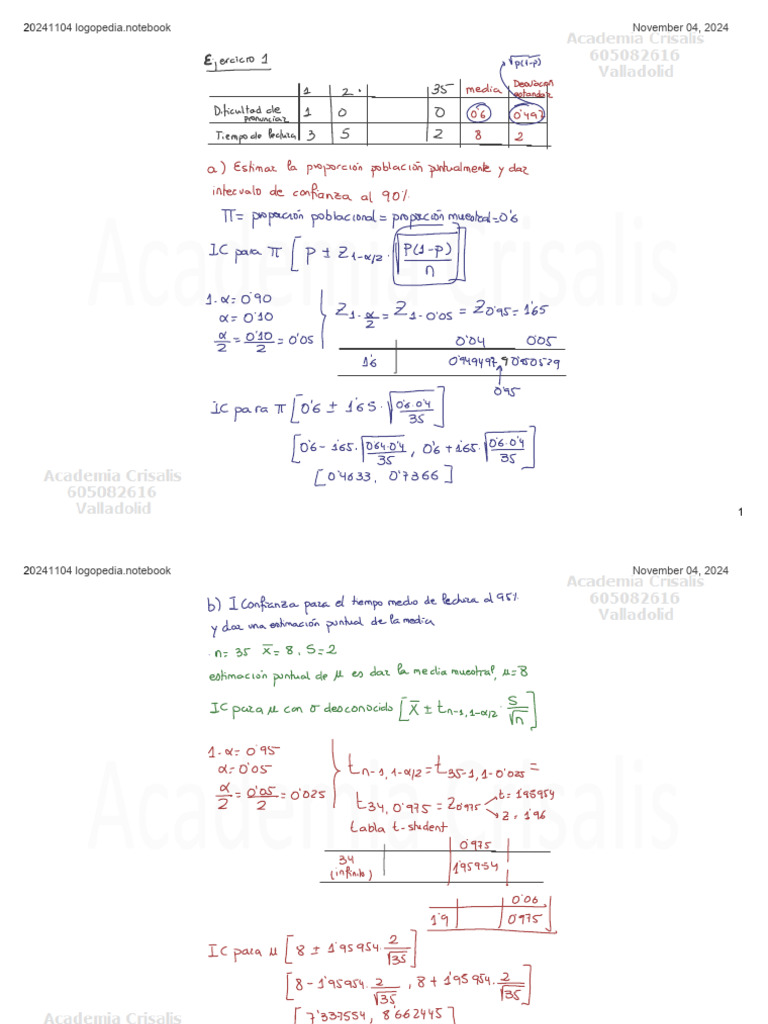 20241104 logopedia.notebook
November 04, 2024
Academia Crisalis
605082616
Valladolid
Ejercicio 1
√p(1-p)
1 2. 35 media Desviación estandar
Dificultad de pronunciar 1 0 0 0'6 0'497
Tiempo de lectura 3 5 2 8 2
a) Estimar la proporción población puntualmente y dar
intervalo de confianza al 90%.
Π = proporción poblacional = proporción muestral = 0'6
IC para π [p ± Z1-α/2 · √(p(1-p)/n)]
1-α = 0'90
α = 0'10
α/2 = 0'10/2 = 0'05
Z1-α/2 = Z1-0'05 = Z0'95 = 1'65
0'04 0'05
1'6 0'949497 0'950529
0'95
IC para π [0'6 ± 1'65 · √(0'6·0'4/35)]
[0'6 - 1'65 · √(064·0'4/35), 0'6 + 1'65 · √(0'6·0'4/35)]
[0'4633, 0'7366]
Academia Crisalis
605082616
Valladolid
Academia Crisalis
1
20241104 logopedia.notebook
November 04, 2024
Academia Crisalis
605082616
Valladolid
b) I Confianza para el tiempo medio de lectura al 95%
y dar una estimación puntual de la media
n = 35 x̄ = 8, S = 2
estimación puntual de μ es dar la media muestral, μ = 8
IC para μ con σ desconocido [x̄ ± tn-1, 1-α/2 · S/√n]
1-α = 0'95
α = 0'05
α/2 = 0'05/2 = 0'025
tn-1, 1-α/2 = t35-1, 1-0'025 =
t34, 0'975 = Z0'975
t = 1'95954
z = 1'96
tabla t-student
0'975
34 (infinito) 1'95954
0'06
1'9 0'975
IC para μ [8 ± 1'95954 · 2/√35]
[8 - 1'95954 · 2/√35, 8 + 1'95954 · 2/√35]
[7'337554, 8'662445]
Academia Crisalis
Academia Crisalis